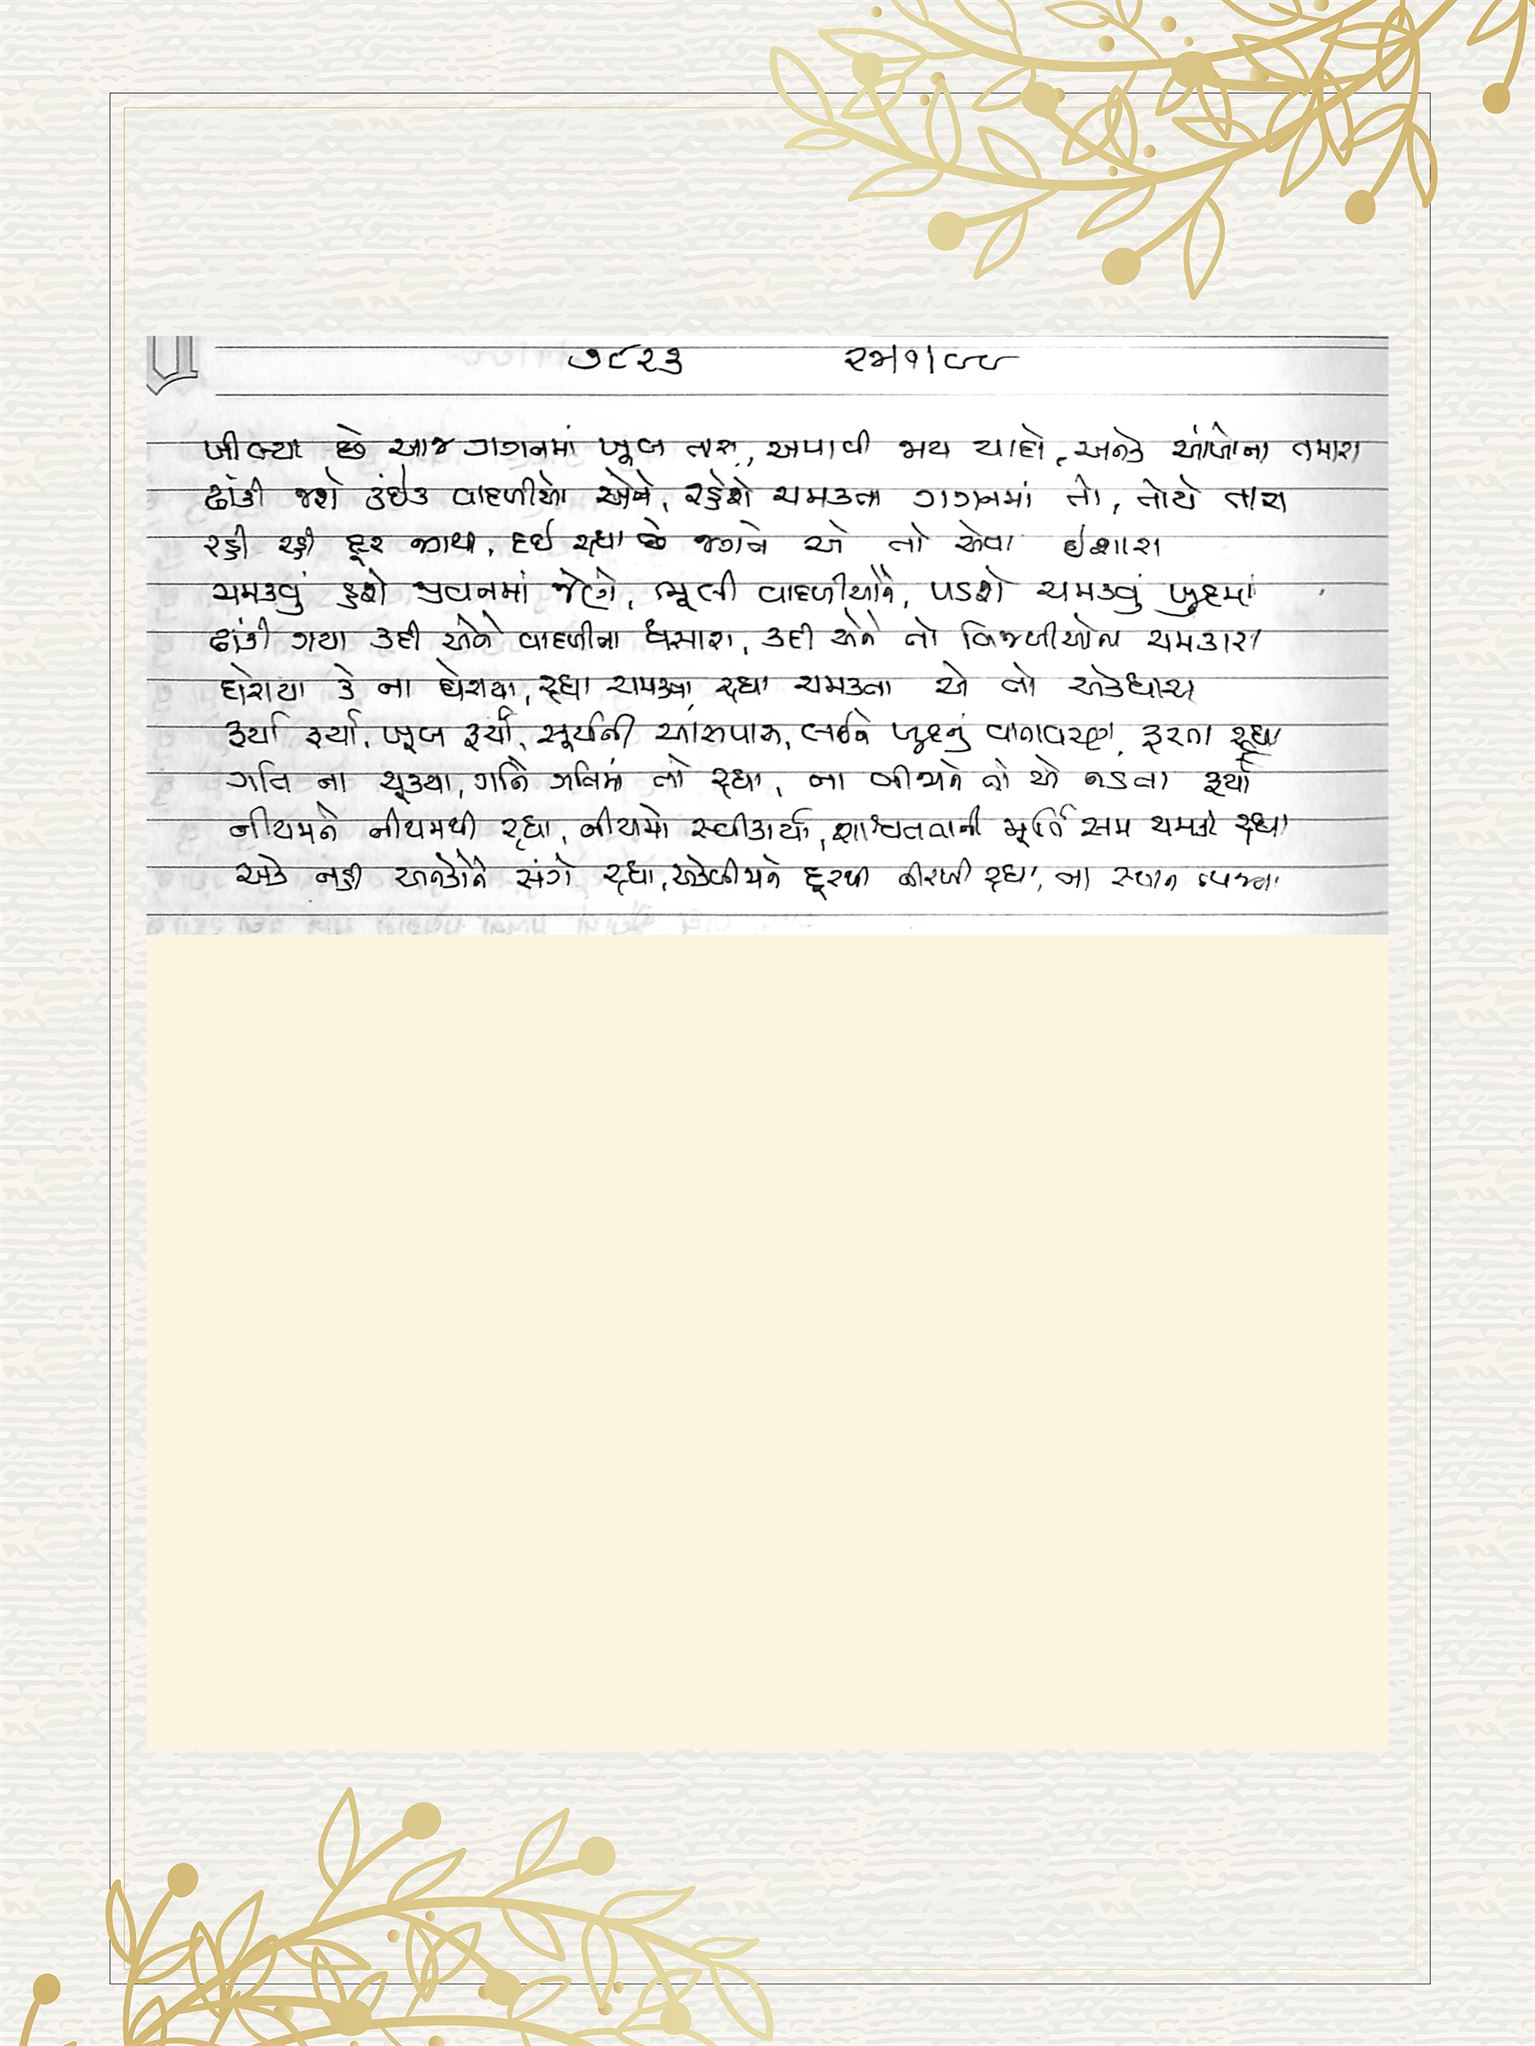 ૭૮૨૩ ૨૫/૧/૯૯
ખીલ્યા છે આજ ગગનમાં ખૂબ તારા, અપાવી જાય યાદો, અનેક આંખોના તમારા
ઢાંકી જશે કંઈક વાદળીઓ એને, રહેશે ચમકતા ગગનમાં તો, તોયે તારા
રહી રહી દૂર આથી, દઈ રહ્યા છે જગને એ તો એવા ઇશારા
ચમકવું હશે જીવનમાં જેણે, ભૂલી વાદળીઓને, પડશે ચમકવું ખુદમાં
ઢાંકી ગયા કદી એને વાદળીના ધસારા, કદી એને તો વિજળીઓના ચમકારા
ઘેરાયા કે ના ઘેરાયા, રહ્યા ચમકતા રહ્યા ચમકતા એ તો એકધારા
ફર્યા ફર્યા, ખૂબ ફર્યા, સૂર્યની આસપાસ, લઈને ખુદનું વાતાવરણ, ફરતા રહ્યા
ગતિ ના ચૂક્યા, ગતિને ગતિમાં તો રહ્યા, ના બીજાને તો એ નડતા ફર્યા
નીયમને નીયમથી રહ્યા, નીયમો સ્વીકાર્યા, શાશ્વતતાની મૂર્તિ સમ ચમકી રહ્યા
એક નહી અનેકોને સંગે રહ્યા, એકબીજાને દૂરથી નીરખી રહ્યા, ના સ્થાન ત્યજ્યા